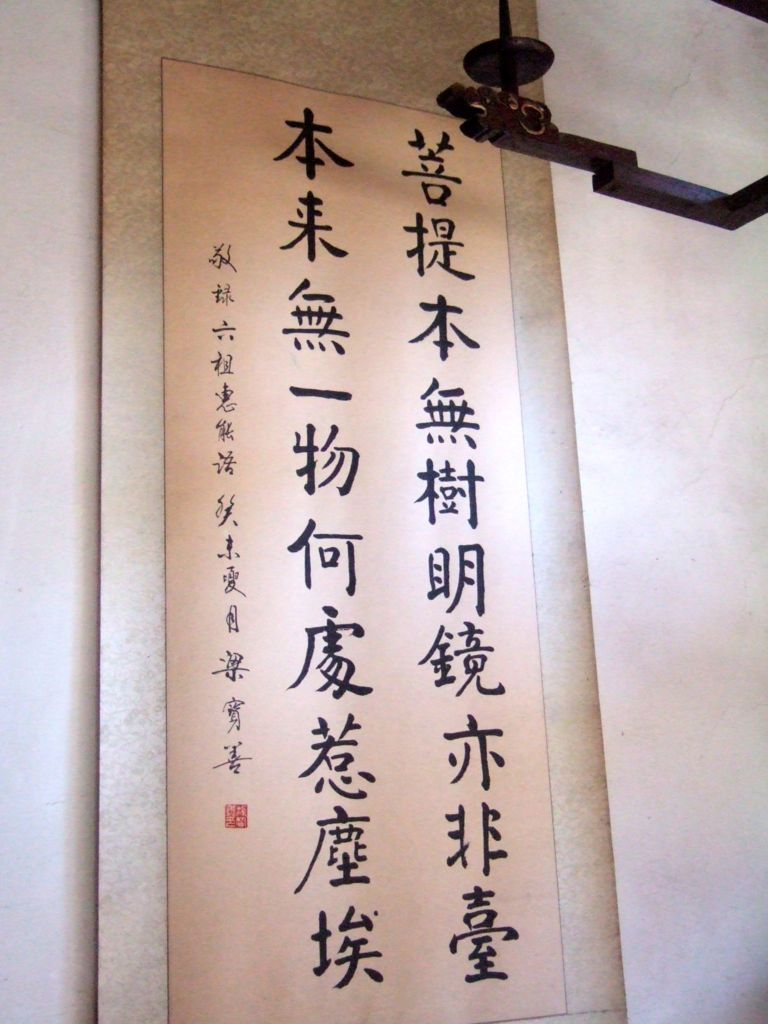 菩提本無樹明鏡亦非臺
本来無一物何處惹塵埃
敬録六祖惠能語癸未夏月梁寶善